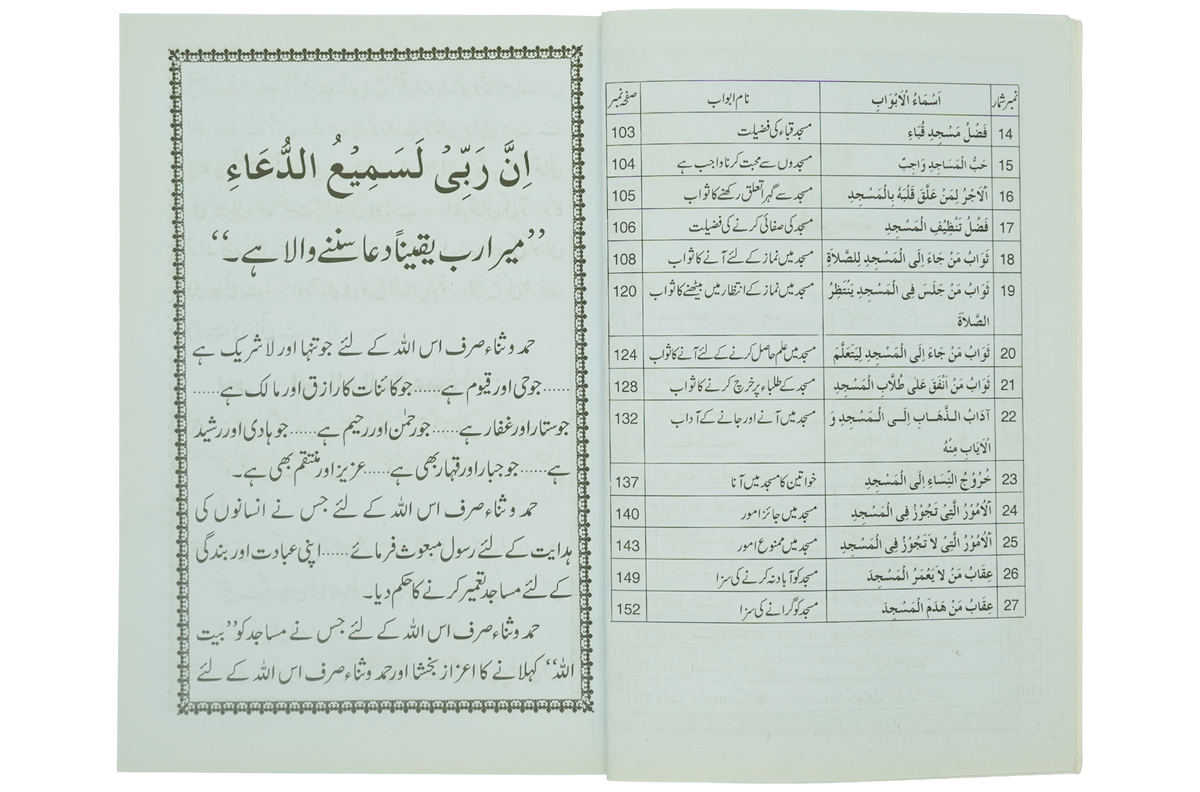 نمبر شمار اَسْمَاءُ الْاَبْوَابِ نام ابواب صفحہ نمبر
14 فَضْلُ مَسْجِدِ قُبَاءِ مسجد قباء کی فضیلت 103
15 حَبُّ الْمَسَاجِدِ وَاجِبٌ مسجدوں سے محبت کرنا واجب ہے 104
16 اَلْاَجْرُ لِمَنْ عَلَّقَ قَلْبَهُ بِالْمَسْجِدِ مسجد سے گہرا تعلق رکھنے کا ثواب 105
17 فَضْلُ تَنْظِيْفِ الْمَسْجِدِ مسجد کی صفائی کرنے کی فضیلت 106
18 ثَوَابُ مَنْ جَاءَ اِلَى الْمَسْجِدِ لِلصَّلَاةِ مسجد میں نماز کے لئے آنے کا ثواب 108
19 ثَوَابُ مَنْ جَلَسَ فِى الْمَسْجِدِ يَنْتَظِرُ مسجد میں نماز کے انتظار میں بیٹھنے کا ثواب 120
الصَّلَاةَ
20 ثَوَابُ مَنْ جَاءَ اِلَى الْمَسْجِدِ لِيَتَعَلَّمَ مسجد میں علم حاصل کرنے کے لئے آنے کا ثواب 124
21 ثَوَابُ مَنْ اَنْفَقَ عَلٰى طُلَّابِ الْمَسْجِدِ مسجد کے طلباء پر خرچ کرنے کا ثواب 128
22 آدَابُ الذَّهَابِ اِلَى الْمَسْجِدِ وَ مسجد میں آنے اور جانے کے آداب 132
الْاَيَابِ مِنْهُ
23 خُرُوْجُ النِّسَاءِ اِلَى الْمَسْجِدِ خواتین کا مسجد میں آنا 137
24 اَلْاُمُوْرُ الَّتِىْ تَجُوْزُ فِى الْمَسْجِدِ مسجد میں جائز امور 140
25 اَلْاُمُوْرُ الَّتِىْ لاَ تَجُوْزُ فِى الْمَسْجِدِ مسجد میں ممنوع امور 143
26 عِقَابُ مَنْ لاَ يَعْمَرُ الْمَسْجِدَ مسجد کو آباد نہ کرنے کی سزا 149
27 عِقَابُ مَنْ هَدَمَ الْمَسْجِدَ مسجد کو گرانے کی سزا 152
اِنَّ رَبِّىْ لَسَمِيْعُ الدُّعَاءِ
”میرا رب یقیناً دعا سننے والا ہے۔“
حمد و ثناء صرف اس اللہ کے لئے جو تنہا اور لا شریک ہے
......جو حی اور قیوم ہے......جو کائنات کا رازق اور مالک ہے......
جو ستار اور غفار ہے......جو رحمٰن اور رحیم ہے......جو ہادی اور رشید
ہے......جو جبار اور قہار بھی ہے......عزیز اور منتقم بھی ہے۔
حمد و ثناء صرف اس اللہ کے لئے جس نے انسانوں کی
ہدایت کے لئے رسول مبعوث فرمائے......اپنی عبادت اور بندگی
کے لئے مساجد تعمیر کرنے کا حکم دیا۔
حمد و ثناء صرف اس اللہ کے لئے جس نے مساجد کو ”بیت
اللہ“ کہلانے کا اعزاز بخشا اور حمد و ثناء صرف اس اللہ کے لئے